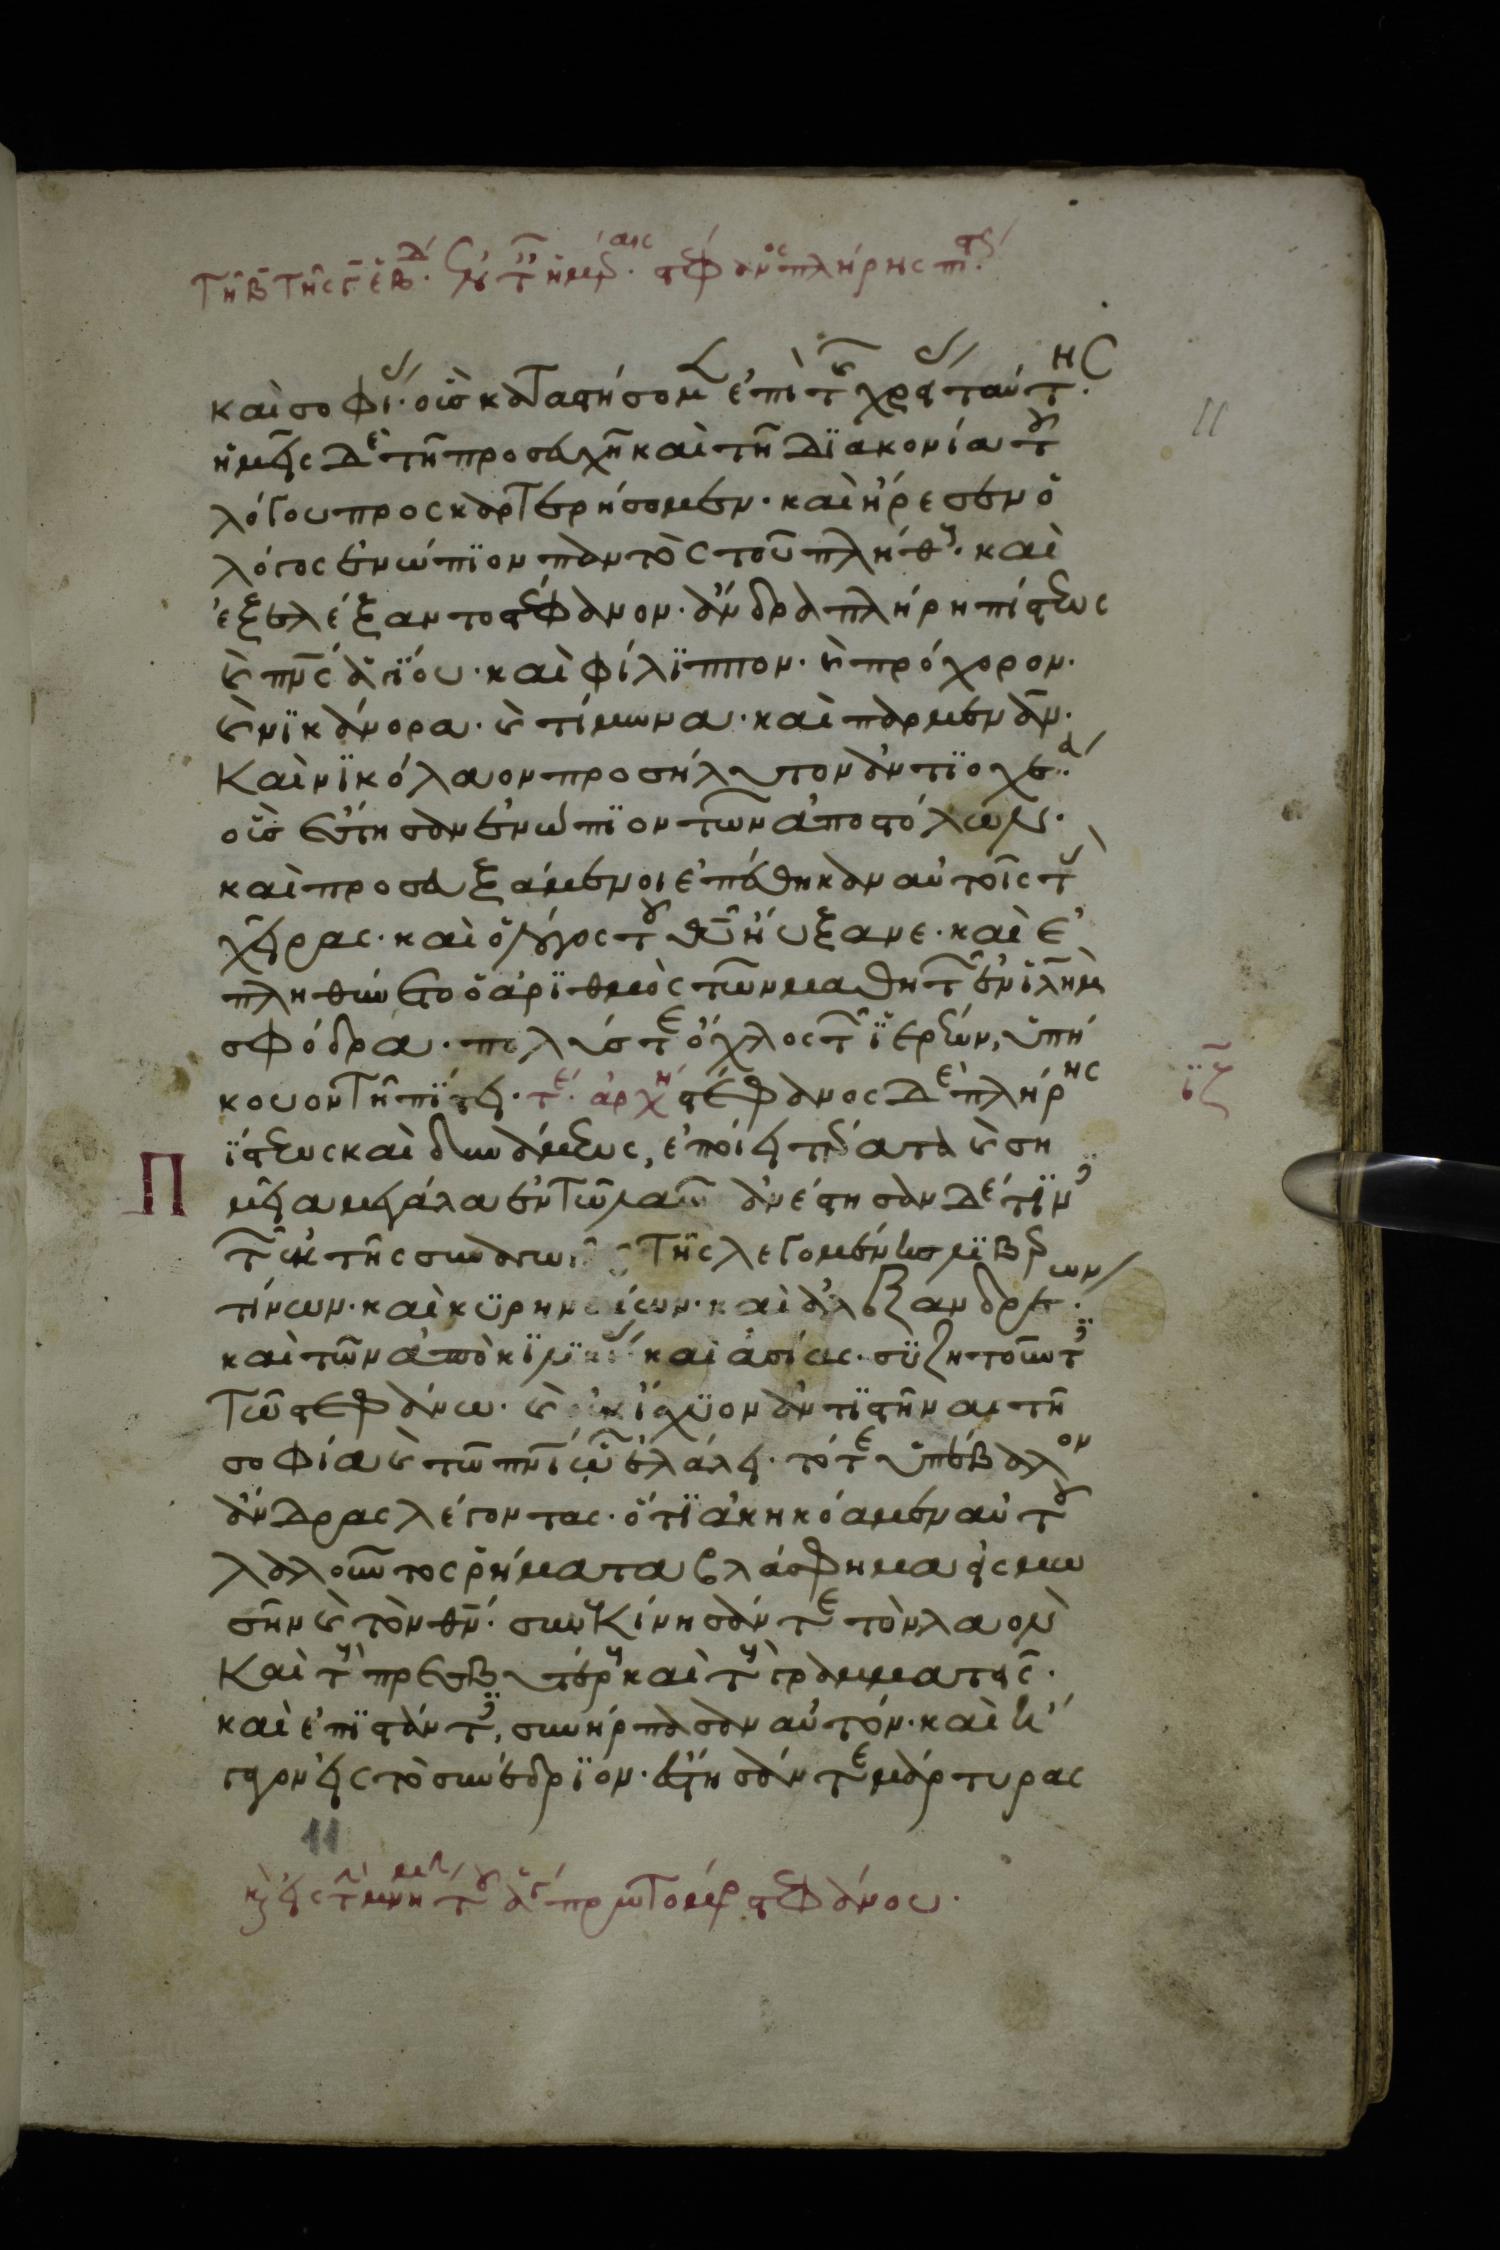 τῆ β τῆς γ ἑβδ. ἐν τ ἡμέραις στέφανος πλήρης πιστ
11
καὶ σοφί· οὓς καταστήσομ ἐπὶ τ χρείας ταύτης.
ἡμεῖς δὲ τῆ προσευχῆ καὶ τῆ διακονία τοῦ
λόγου προσκαρτερήσομεν· καὶ ἤρεσεν ὁ
λόγος ἐνώπϊον παντὸς τοῦ πλήθους· καὶ
ἐξελέξαντο στέφανον· ἄνδρα πλήρη πίστεως
καὶ πνς ἁγίου· καὶ φίλϊππον· καὶ πρόχορον·
καὶ νϊκάνορα· καὶ τίμωνα· καὶ παρμενᾶν·
καὶ νϊκόλαον προσήλυτον ἀντϊοχέα·
οὓς ἔστησαν ἐνώπϊον τῶν ἀποστόλων·
καὶ προσευξάμενοι ἐπέθηκαν αὐτοῖς τ
χεῖρας· καὶ ὁ λόγος τοῦ θυ ηὔξανε· καὶ ἐ
πληθύνετο ὁ ἀρϊθμὸς τῶν μαθητῶν ἐν ἱλημ
σφόδρα· πολύς τε ὄχλος τῶν ἱερέων, ὑπή
κουον τῆ πίστει· τε· ἀρχη στέφανος δὲ πλήρης
ιζ
Πίστεως καὶ δυνάμεως, ἐποίει τέρατα καὶ ση
μεῖα μεγάλα ἐν τῶ λαῶ ἀνέστησαν δέ τϊνες
τῶν ἐκ τῆς συναγωγῆς τῆς λεγομένης λϊβερ
τίνων· καὶ κϋρηναίων· καὶ ἀλεξανδρέων·
καὶ τῶν ἀπὸ κϊλϊκίας καὶ ἀσίας· σϋζητοῦντες
τῶ στεφάνω· καὶ οὐκ ἴσχϋον ἀντϊστῆναι τῆ
σοφία καὶ τῶ πνι ᾧ ἐλάλει· τότε ὑπέβαλον
ἄνδρας λέγοντας· ὅτϊ ἀκηκόαμεν αὐτοῦ
λαλοῦντος ῥήματα βλάσφημα εἰς μωυ
σῆν καὶ τὸν θν· συνεκίνησάν τε τὸν λαὸν
καὶ τοὺς πρεσβυτέρους καὶ τοὺς γραμματεῖς·
καὶ ἐπϊστάντες, συνήρπασαν αὐτόν· καὶ ἤ
γαγον εἰς τὸ συνέδρϊον· ἔστησάν τε μάρτυρας
11
καὶ εἰς τ μνήμην τοῦ ἁγ πρωτομάρ στεφάνου·